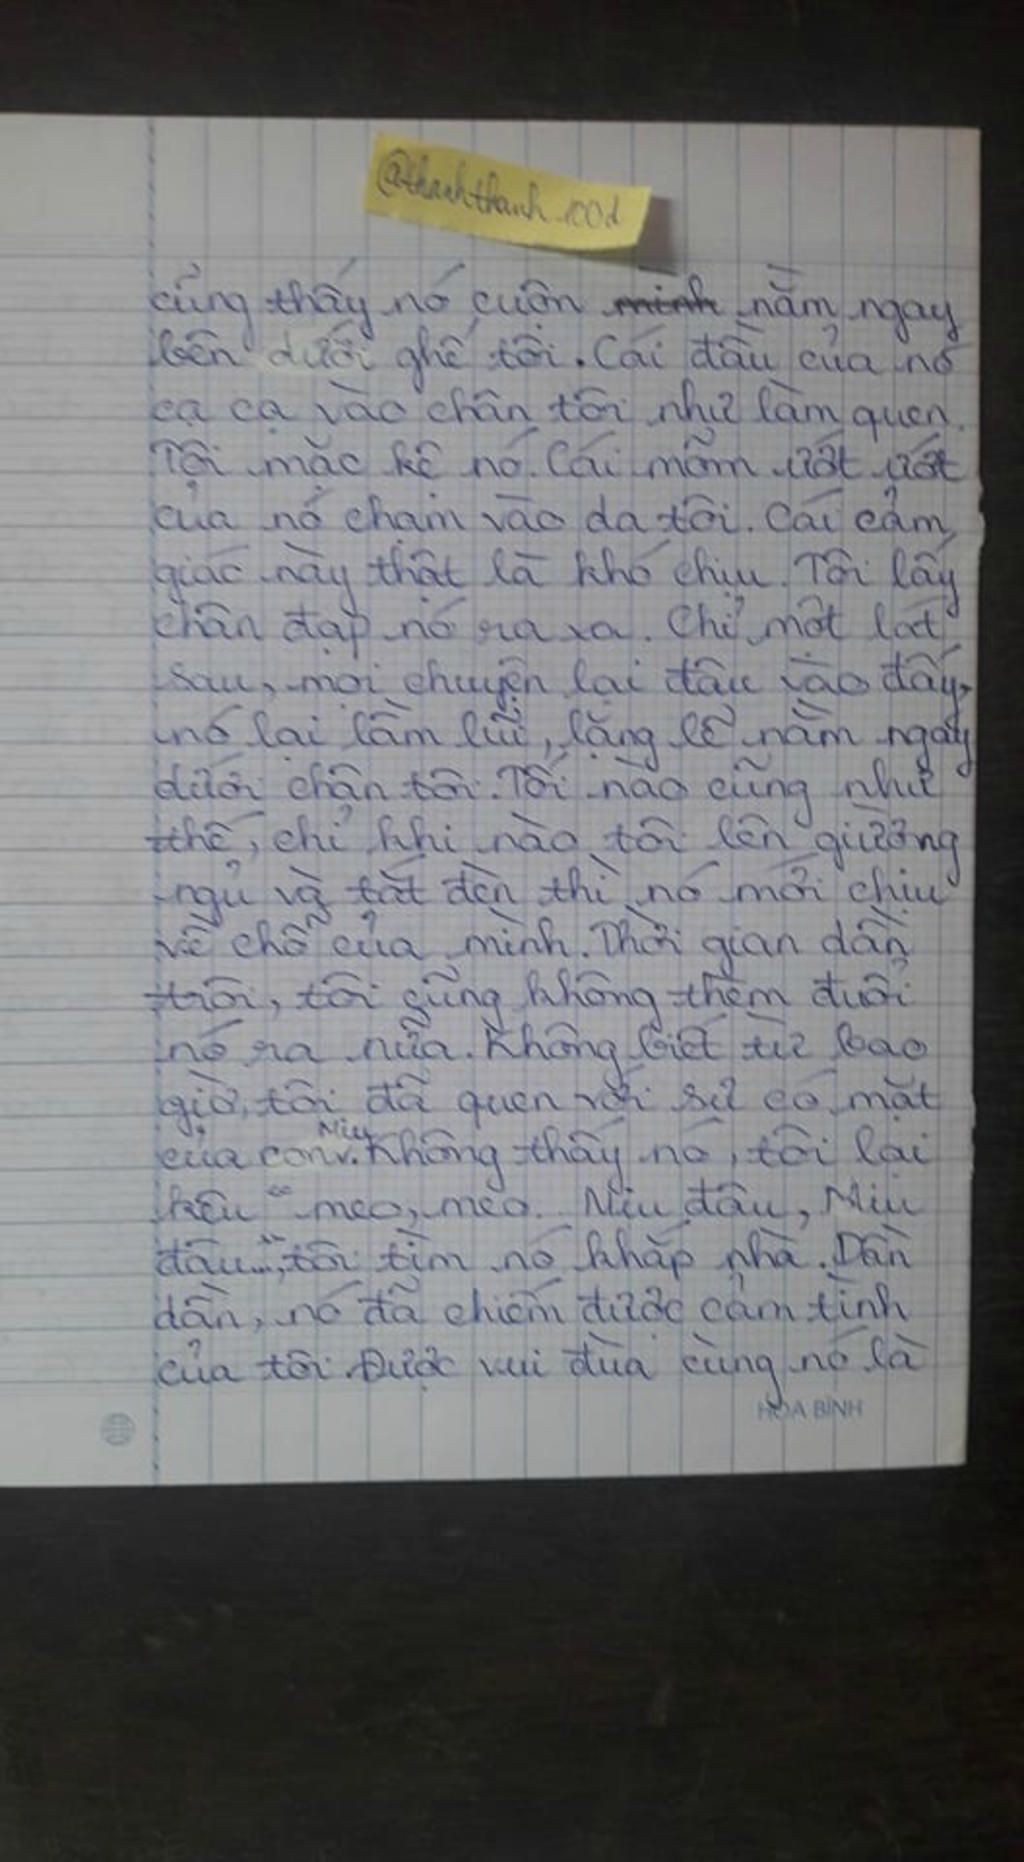 @thanhthanh.100d
cũng thấy nó cuộn minh nằm ngay
bên dưới ghế tôi. Cái đầu của nó
cạ cạ vào chân tôi như làm quen.
Tôi mặc kệ nó. Cái mõm ướt ướt
của nó chạm vào da tôi. Cái cảm
giác này thật là khó chịu. Tôi lấy
chân đạp nó ra xa. Chỉ một lát
sau, mọi chuyện lại đâu vào đấy,
nó lại lầm lũi, lặng lẽ nằm ngay
dưới chân tôi. Tối nào cũng như
thế, chỉ khi nào tôi lên giường
ngủ và tắt đèn thì nó mới chịu
về chỗ của mình. Thời gian dần
trôi, tôi cũng không thèm đuổi
nó ra nữa. Không biết từ bao
giờ, tôi đã quen với sự có mặt
của con Miu. Không thấy nó, tôi lại
kêu "meo, meo. Miu đâu, Miu
đâu...", tôi tìm nó khắp nhà. Dần
dần, nó đã chiếm được cảm tình
của tôi. Được vui đùa cùng nó là
HÒA BÌNH